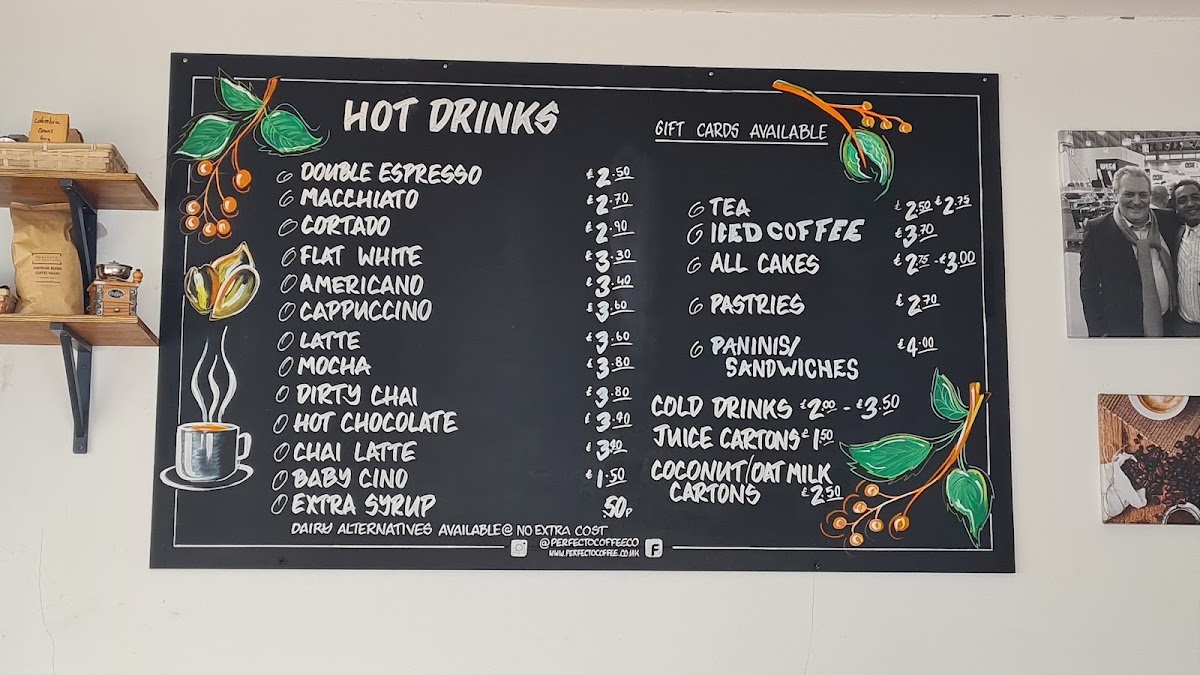 HOT DRINKS
DOUBLE ESPRESSO £2.50
MACCHIATO £2.70
CORTADO £2.90
FLAT WHITE £3.30
AMERICANO £3.40
CAPPUCCINO £3.60
LATTE £3.60
MOCHA £3.80
DIRTY CHAI £3.80
HOT CHOCOLATE £3.90
CHAI LATTE £3.90
BABY CINO £1.50
EXTRA SYRUP .50P
DAIRY ALTERNATIVES AVAILABLE @ NO EXTRA COST
@PERFECTOCOFFEECO
WWW.PERFECTOCOFFEE.CO.UK
GIFT CARDS AVAILABLE
TEA £2.50 £2.75
ICED COFFEE £3.70
ALL CAKES £2.75 - £3.00
PASTRIES £2.70
PANINIS/ £4.00
SANDWICHES
COLD DRINKS £2.00 - £3.50
JUICE CARTONS £1.50
COCONUT/OAT MILK
CARTONS £2.50
Colombia
Beans